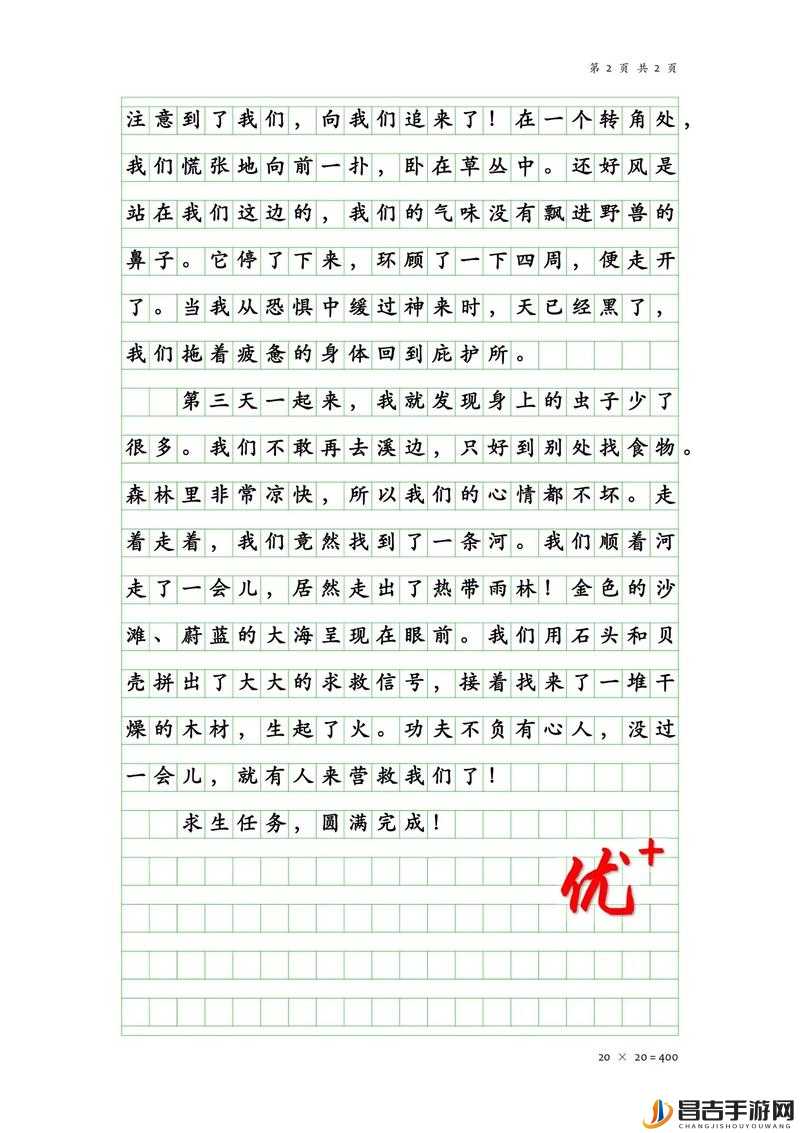 第 2 页 共 2 页
注意到了我们，向我们追来了！在一个转角处，
我们慌张地向前一扑，卧在草丛中。还好风是
站在我们这边的，我们的气味没有飘进野兽的
鼻子。它停了下来，环顾了一下四周，便走开
了。当我从恐惧中缓过神来时，天已经黑了，
我们拖着疲惫的身体回到庇护所。
第三天一起来，我就发现身上的虫子少了
很多。我们不敢再去溪边，只好到别处找食物。
森林里非常凉快，所以我们的心情都不坏。走
着走着，我们竟然找到了一条河。我们顺着河
走了一会儿，居然走出了热带雨林！金色的沙
滩、蔚蓝的大海呈现在眼前。我们用石头和贝
壳拼出了大大的求救信号，接着找来了一堆干
燥的木材，生起了火。功夫不负有心人，没过
一会儿，就有人来营救我们了！
求生任务，圆满完成！
优+
20 × 20 = 400
昌吉手游网
CHANGJISHOUYOUWANG